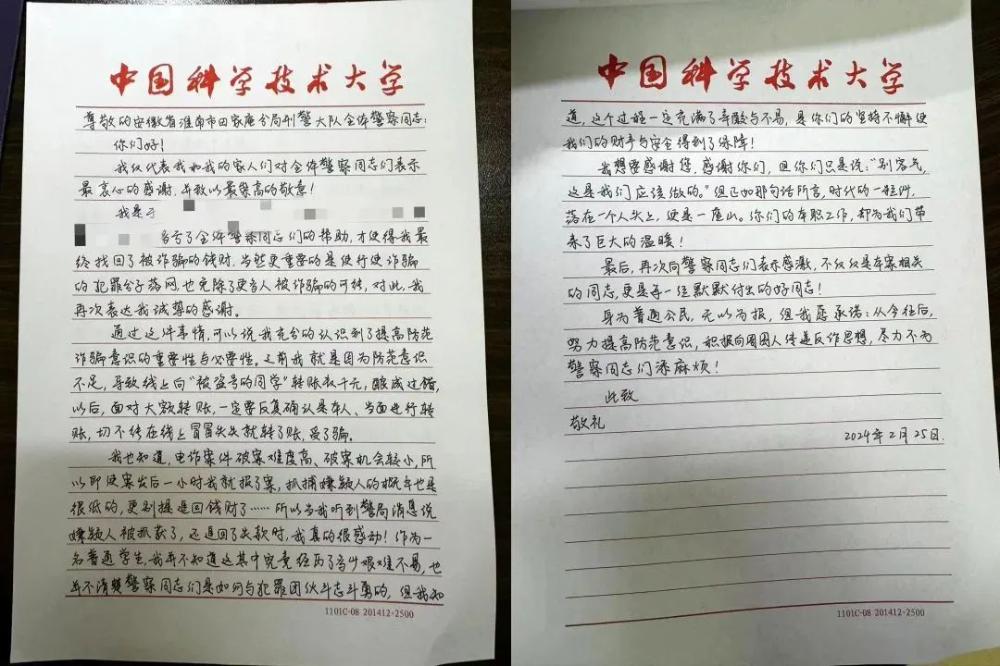 中国科学技术大学
尊敬的安徽省淮南市田家庵分局刑警大队全体警察同志:
你们好!
我仅代表我和我的家人们对全体警察同志们表示
最衷心的感谢,并致以最崇高的敬意!
我是于
多亏了全体警察同志们的帮助,才使得我最
终找回了被诈骗的钱财,当然更重要的是使行使诈骗
的犯罪分子落网,也免除了更多人被诈骗的可能,对此,我
再次表达我诚挚的感谢。
通过这件事情,可以说我充分的认识到了提高防范
诈骗意识的重要性与必要性。之前我就是因为防范意识
不足,导致线上向“被盗号的同学”转账数千元,酿成过错,
以后,面对大额转账,一定要反复确认是本人、当面进行转
账,切不能在线上冒冒失失就转了账,受了骗。
我也知道,电诈案件破案难度高、破案机会较小,所
以即使案出后一小时我就报了案,抓捕嫌疑人的概率也是
很低的,更别提追回钱财了……所以当我听到警局消息说
嫌疑人被抓获了,还追回了失款时,我真的很感动!作为一
名普通学生,我并不知道这其中究竟经历了多少艰难不易,也
并不清楚警察同志们是如何与犯罪团伙斗志斗勇的,但我知
1101C-08 201412-2500
中国科学技术大学
道,这个过程一定充满了辛酸与不易,是你们的坚持不懈使
我们的财产与安全得到了保障!
我想要感谢您,感谢你们,但你们只是说:“别客气,
这是我们应该做的。”但正如那句话所言,时代的一粒沙,
落在一个人头上,便是一座山。你们的本职工作,却为我们带
来了巨大的温暖!
最后,再次向警察同志们表示感激,不仅仅是本案相关
的同志,更是每一位默默付出的好同志!
身为普通公民,无以为报,但我愿承诺:从今往后,
努力提高防范意识,积极向周围人传递反诈思想,尽力不为
警察同志们添麻烦!
此致
敬礼
2024年2月25日.
1101C-08 201412-2500